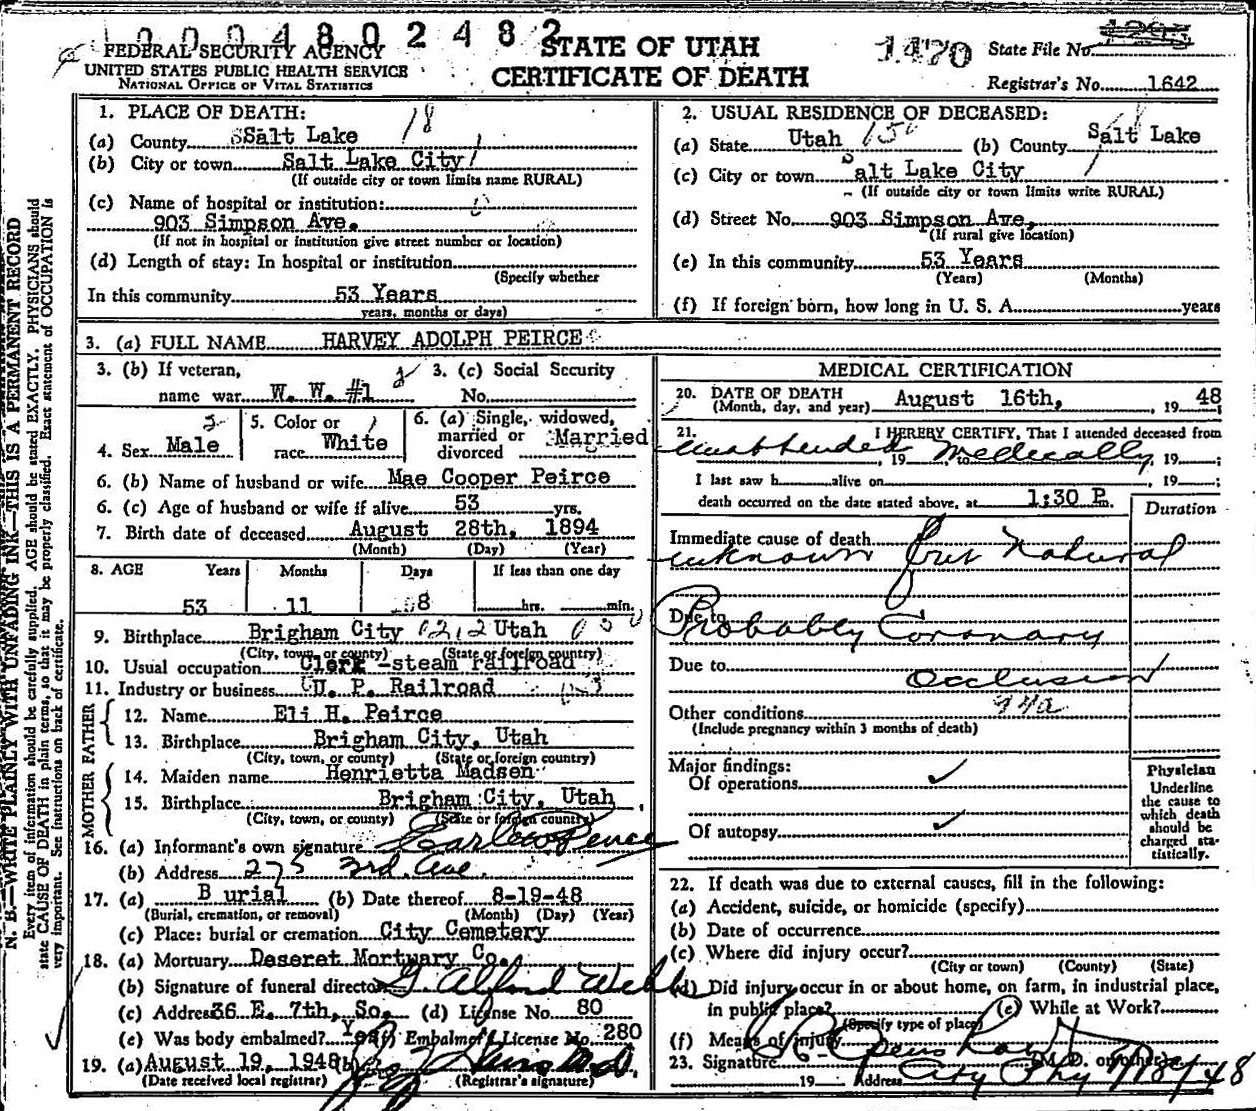 0004802482
FEDERAL SECURITY AGENCY
UNITED STATES PUBLIC HEALTH SERVICE
NATIONAL OFFICE OF VITAL STATISTICS
STATE OF UTAH
CERTIFICATE OF DEATH
1470
State File No. 1295
Registrar's No. 1642
N. B.—WRITE PLAINLY WITH UNFADING INK—THIS IS A PERMANENT RECORD
Every item of information should be carefully supplied. AGE should be stated EXACTLY. PHYSICIANS should
state CAUSE OF DEATH in plain terms, so that it may be properly classified. Exact statement of OCCUPATION is
very important. See instructions on back of certificate.
1. PLACE OF DEATH:
(a) County SSalt Lake 18
(b) City or town Salt Lake City 1
(If outside city or town limits name RURAL)
(c) Name of hospital or institution: 0
903 Simpson Ave.
(If not in hospital or institution give street number or location)
(d) Length of stay: In hospital or institution
(Specify whether
In this community 53 Years
years, months or days)
2. USUAL RESIDENCE OF DECEASED:
(a) State Utah 150 (b) County Salt Lake 18
(c) City or town Salt Lake City 1
(If outside city or town limits write RURAL)
(d) Street No. 903 Simpson Ave,
(If rural give location)
(e) In this community 53 Years
(Years) (Months)
(f) If foreign born, how long in U. S. A. years
3. (a) FULL NAME HARVEY ADOLPH PEIRCE
3. (b) If veteran, 3. (c) Social Security
name war W. W. #1 2 No.
4. Sex Male 5. Color or race White 6. (a) Single, widowed, married or divorced Married
6. (b) Name of husband or wife Mae Cooper Peirce
6. (c) Age of husband or wife if alive 53 yrs.
7. Birth date of deceased August 28th, 1894
(Month) (Day) (Year)
8. AGE Years Months Days If less than one day
53 11 8 hrs. min.
9. Birthplace Brigham City 0212 Utah 050
(City, town, or county) (State or foreign country)
10. Usual occupation Clerk -steam railroad
11. Industry or business U. P. Railroad
FATHER
12. Name Eli H. Peirce
13. Birthplace Brigham City, Utah
(City, town, or county) (State or foreign country)
MOTHER
14. Maiden name Henrietta Madsen
15. Birthplace Brigham City, Utah
(City, town, or county) (State or foreign country)
16. (a) Informant's own signature Earl Peirce
(b) Address 275 3rd. Ave.
17. (a) Burial (b) Date thereof 8-19-48
(Burial, cremation, or removal) (Month) (Day) (Year)
(c) Place: burial or cremation City Cemetery
18. (a) Mortuary Deseret Mortuary Co.
(b) Signature of funeral director G. Alford Webb
(c) Address 36 E. 7th, So. (d) License No. 80
(e) Was body embalmed? Yes (f) Embalmer License No. 280
19. (a) August 19, 1948 (b) M.D.
(Date received local registrar) (Registrar's signature)
MEDICAL CERTIFICATION
20. DATE OF DEATH
(Month, day, and year) August 16th, 19 48
21. I HEREBY CERTIFY, That I attended deceased from
unattended , 19 to medically , 19 ;
I last saw h alive on , 19 ;
death occurred on the date stated above, at 1:30 P. m.
Duration
Immediate cause of death
unknown but Natural
Due to
Probably Coronary
Due to
Occlusion
94a
Other conditions
(Include pregnancy within 3 months of death)
Major findings:
Of operations ✓
Of autopsy ✓
Physician
Underline
the cause to
which death
should be
charged sta-
tistically.
22. If death was due to external causes, fill in the following:
(a) Accident, suicide, or homicide (specify)
(b) Date of occurrence
(c) Where did injury occur?
(City or town) (County) (State)
(d) Did injury occur in or about home, on farm, in industrial place,
in public place? (e) While at Work?
(Specify type of place)
(f) Means of injury
23. Signature (M. D. or other)
19 Address City Phy 8/18/48